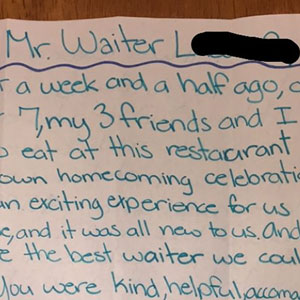 Mr. Waiter L
a week and a half ago,
7, my 3 friends and I
eat at this restaurant
own homecoming celebrati
an exciting experience for us
and it was all new to us. And
the best waiter we coul
You were kind, helpful, accom